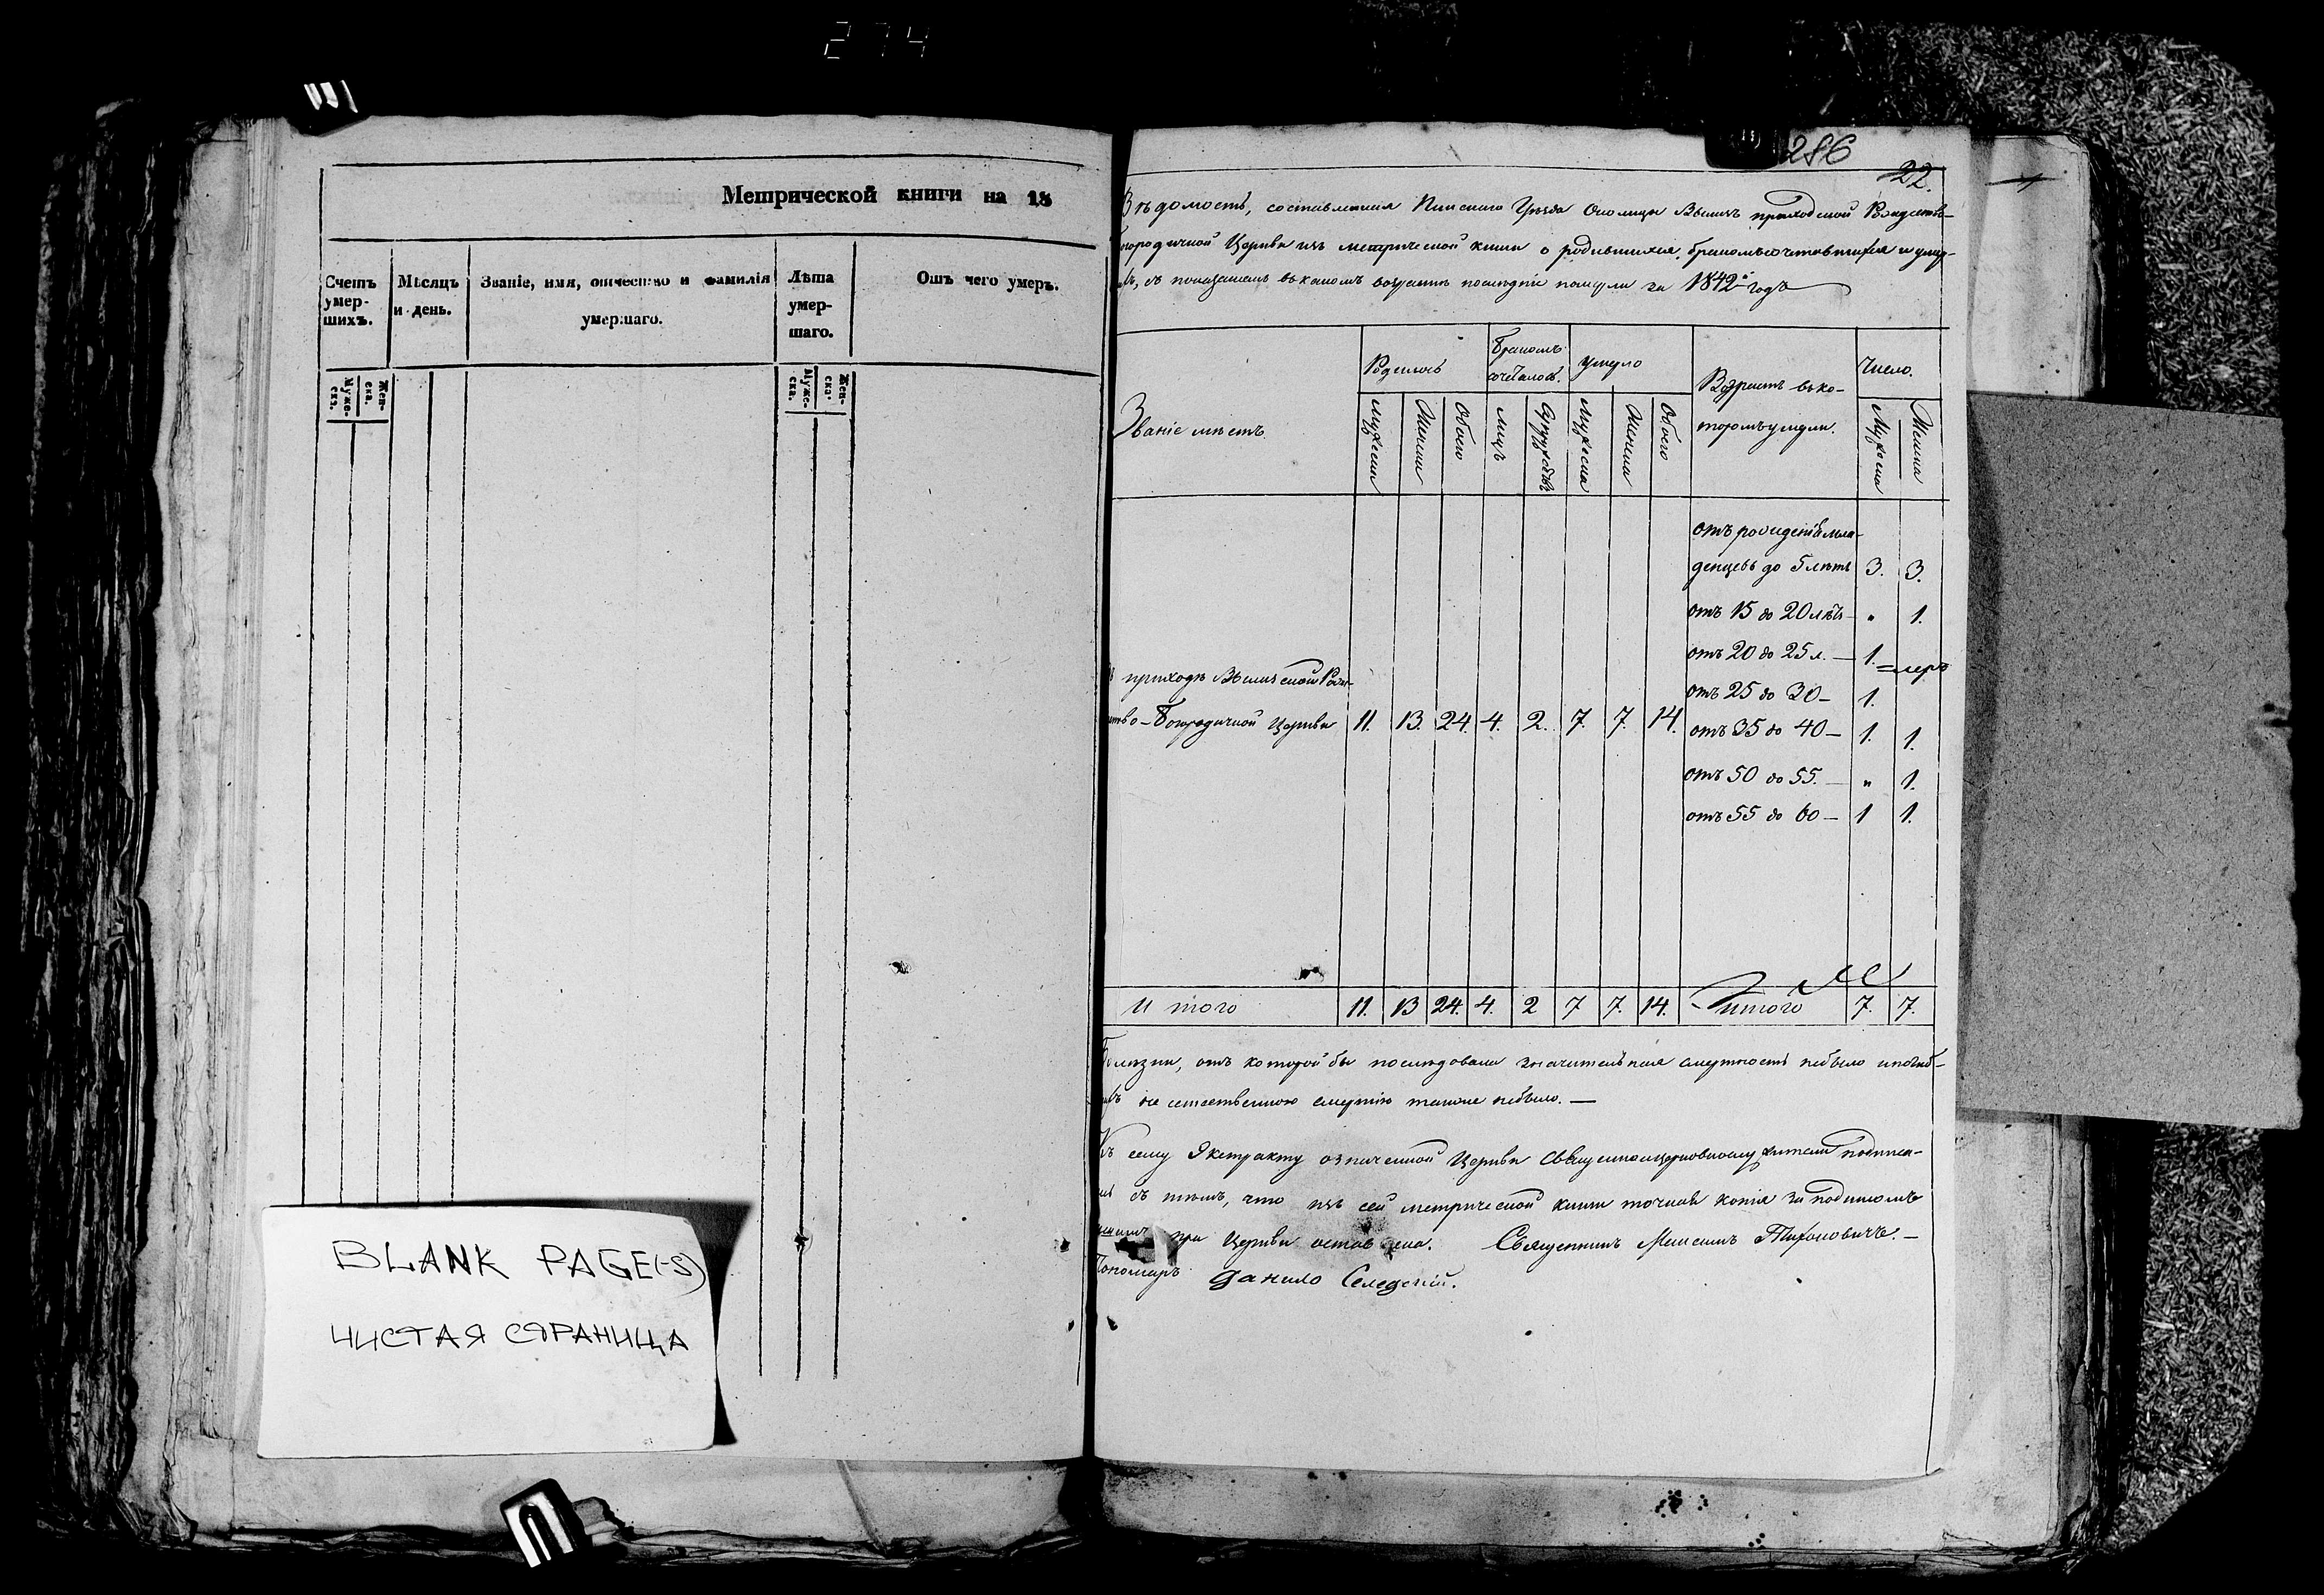 274
Метрической книги на 18
Счетъ умер-шихъ.
Мѣсяцъ и день.
Званіе, имя, отчество и фамилія умершаго.
Лѣта умер-шаго.
Отъ чего умеръ.
Муже-ска.
Жен-ска.
Муже-ска.
Жен-ска.
BLANK PAGE(-S)
ЧИСТАЯ СТРАНИЦА
286
22.
Вѣдомость, составленная Пинскаго Уѣзда приходской Рождество-
Богородичной Церкви изъ метрической книги о родившихся, бракомъ сочетавшихся и умер-
съ показаніемъ въ какомъ возрастѣ послѣдніе померли за 1842й годъ
Званіе мѣстъ.
Родилось
Бракомъ сочеталось.
Умерло
Возрастъ въ ко-
торомъ умерли.
Число.
Мужеска
Женска
Обоего
Лицъ
Супружествъ
Мужеска
Женска
Обоего
Мужеска
Женска
отъ рожденія мла-
денцевъ до 5 лѣтъ 3. 3.
отъ 15 до 20 лѣтъ — " 1.
отъ 20 до 25 л. — 1.
отъ 25 до 30 — 1.
приходѣ
ство-Богородичной Церкви 11. 13. 24. 4. 2. 7. 7. 14.
отъ 35 до 40 — 1. 1.
отъ 50 до 55. — " 1.
отъ 55 до 60 — 1 1.
И того 11. 13 24. 4. 2 7 7. 14. Итого 7. 7.
Болѣзни, отъ которой бы послѣдовала значительная смертность небыло
не естественною смертію также небыло. —
Къ сему Экстракту означенной Церкви Священноцерковнослужители подписа-
съ тѣмъ, что изъ сей метрической книги точная копія за подписомъ
при Церкви оставлена. Священникъ Максимъ Тихоновичъ. —
Пономарь Данило